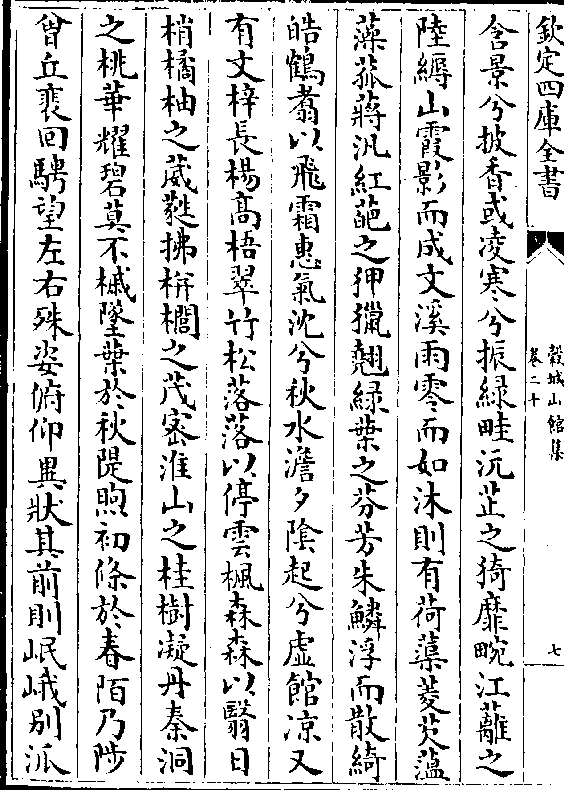 欽定四庫全書
穀城山館集
卷二十
七
含景兮披香或凌寒兮振緑畦沅芷之猗靡畹江蘺之
陸縟山霞影而成文溪雨零而如沐則有荷蕖菱芡薀
藻菰蔣汎紅葩之狎獵翹緑葉之芬芳朱鱗浮而散綺
皓鶴翥以飛霜惠氣沈兮秋水澹夕陰起兮虛館凉又
有文梓長楊高梧翠竹松落落以停雲楓森森以翳日
梢橘柚之葳蕤拂栟櫚之茂密淮山之桂樹凝丹秦洞
之桃華耀碧莫不槭墜葉於秋隄煦初條於春陌乃陟
曾丘裵回騁望左右殊姿俯仰異狀其前則岷峨别派